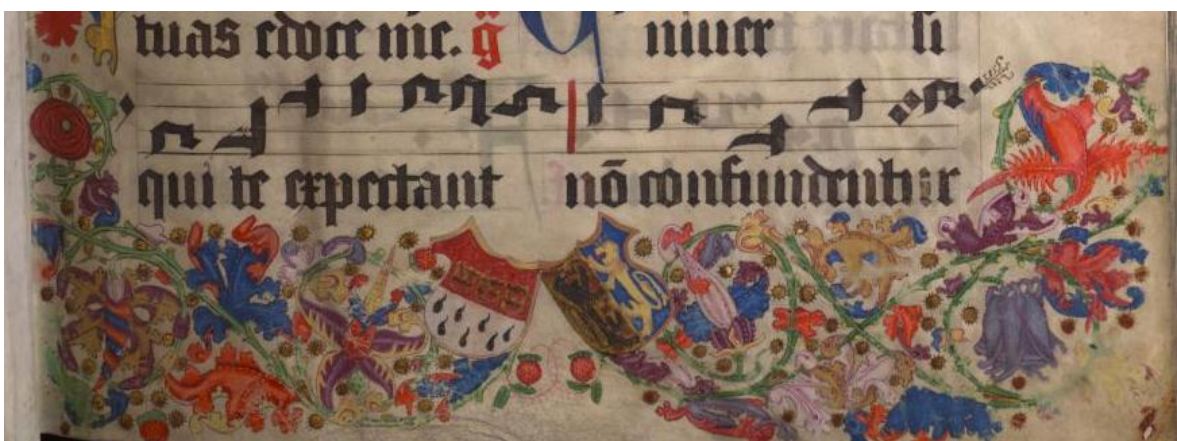 tuas edoce me. g̃ U niuer si
qui te expectant nō confundentur